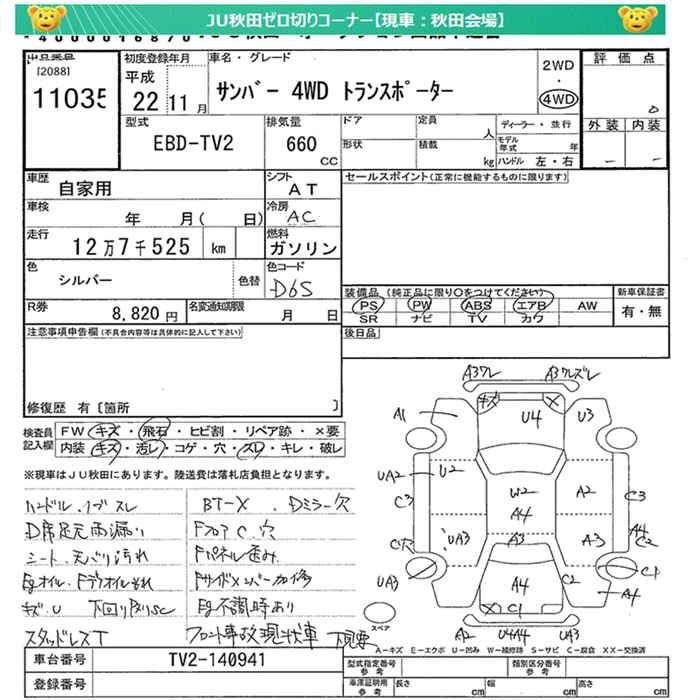 JU秋田ゼロ切りコーナー【現車：秋田会場】
出品番号
[2088]
11035
初度登録年月
平成
22 11 月
車名・グレード
サンバー 4WD トランスポーター
2WD
・
4WD
評価点
外装 内装
型式
EBD-TV2
排気量
660
CC
ドア
形状
定員
人
積載
kg
ディーラー・並行
モデル年式 年
ハンドル 左・右
車歴
自家用
シフト
AT
セールスポイント(正常に機能するものに限ります)
車検
年 月( 日)
冷房
AC
走行
12万7千525 km
燃料
ガソリン
色
シルバー
色替
色コード
D6S
装備品(純正品に限り○をつけてください)
PS PW ABS エアB AW
SR ナビ TV カワ
新車保証書
有・無
R券
8,820 円
名変通知期限
月 日
後日品
注意事項申告欄(不具合内容等は具体的に記入して下さい)
修復歴 有〔箇所 〕
検査員記入欄
FW キズ・飛石・ヒビ割・リペア跡・×要
内装 キズ・汚レ・コゲ・穴・スレ・キレ・破レ
※現車はJU秋田にあります。陸送費は落札店負担となります。
ハンドル.ノブスレ
BT-X . Dミラー穴
D席足元雨漏り
FフロアC.穴
シート.天バリ汚れ
Fパネル歪み
Egオイル.Fデフオイルもれ
Fサイドメンバー加修
キズ.U 下回りサビSC
Eg不調時あり
スタッドレスT
フロント事故現状車
下見要
A3ワレ
A3ワレズレ
キズ
X
A1
U4
U3
UA2
U2
W2
A2
C3
C3
A4
A4
C2
UA3
A3
C穴
UA3
A4
C2
C1
A4
X C1
A2 U4A4 UA3
スペア
A－キズ E－エクボ U－凹み W－補修跡 S－サビ C－腐食 XX－交換済
車台番号
TV2-140941
登録番号
型式指定番号
参考
類別区分番号
参考
車庫証明用
参考
長さ cm
幅 cm
高さ cm